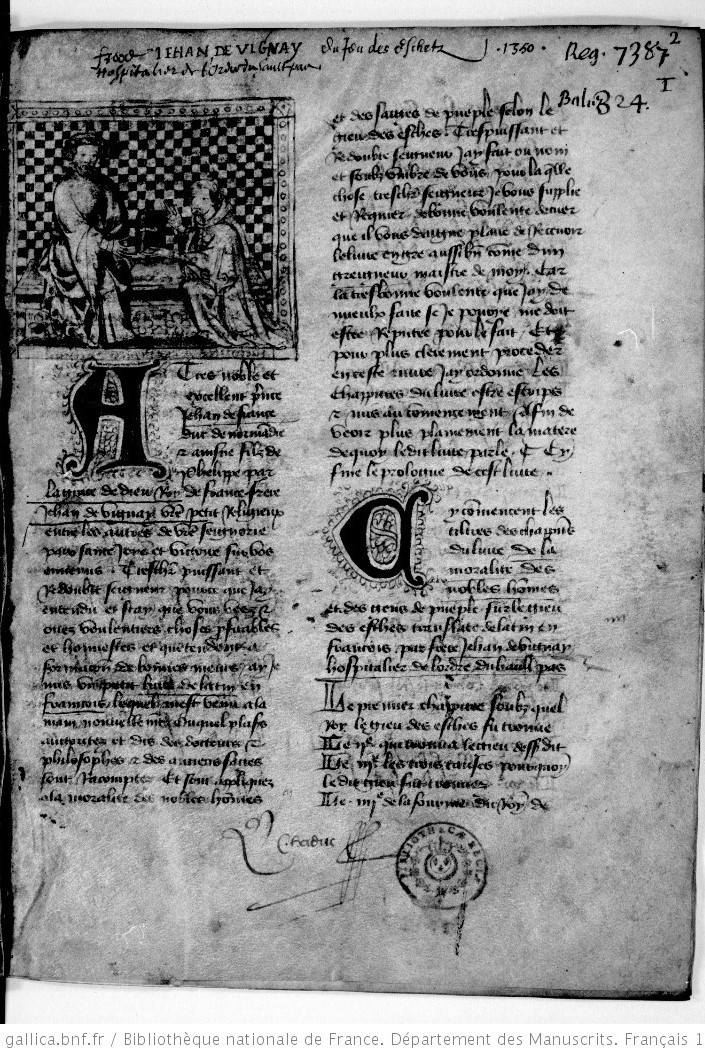 frere JEHAN DE VIGNAY du Jeu des Eschetz .1350. Reg. 7387²
hospitalier de l'ordre du Hault pas
Baluz 824.
I
A Tres noble et
excellent prince
Jehan de france
duc de normandie
& ainsne filz de
phelippe par
la grace de dieu Roy de france frere
Jehan de vignay vre petit Religieux
entre les autres de vre seignorie
paix sante Joye et victoire sus vos
ennemis. Treschr puissant et
Redoubte seigneur pource que Jay
entendu et scay que vous veez &
ouez voulentiers choses pfitables
et honnestes et qui tendent a
formacion de bonnes meurs ay je
mis un petit livre de latin en
francois lequel mest venu a la
main nouvellemt ouquel plus's
auctoritez et dis des docteurs &
philosophes & des anciens saiges
sont Racomptez Et sont appliquez
a la moralite des nobles hommes
et des gens de pueple selon le
gieu des esches. Trespuissant et
Redoubte seigneur Jay fait ou nom
et soubz umbre de vous pour laqlle
chose treschr seigneur Je vous supplie
et Requier de bonne voulente de cuer
que il vous deigne plaire de Recevoir
le livre en gre aussi bn come dun
greigneur maistre de moy. Car
la tresbonne voulente que Jay de
mieulx faire se Je povoye me doit
estre Reputee pour le fait. Et
pour plus clerement proceder
en ceste euvre Jay ordonne Les
chappitres du livre estre escrips
& mis au comencement Afin de
veoir plus plainement la matere
de quoy le dit livre parle. Cy
fine le prologue de cest livre.
Cy cōmencent les
tiltres des chappitres
du livre de la
moralite des
nobles hōmes
et des gens de pueple sur le gieu
des esches translate de latin en
francois par frere Jehan de vignay
hospitalier de lordre du hault pas
Le premier chappitre soubz quel
Roy le gieu des esches fu trouve
Le ije qui trouva le gieu dess dit
Le iije les trois causes pourquoy
le dit gieu fut trouve
Le iiije de la fourme du Roy de
BIBLIOTHECÆ REGIÆ
gallica.bnf.fr / Bibliothèque nationale de France. Département des Manuscrits. Français 1